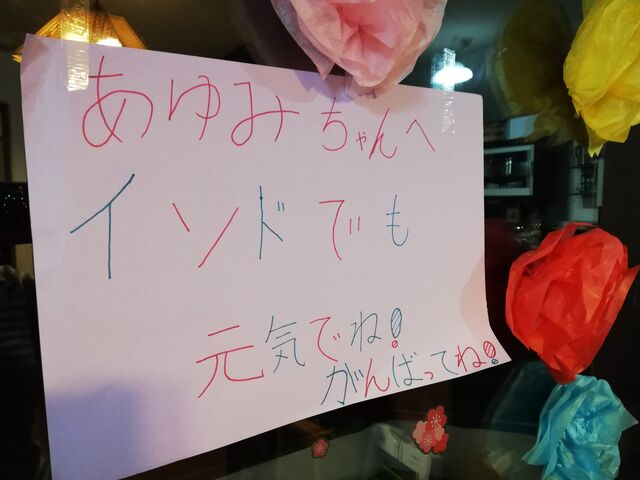 あゆみちゃんへ
インドでも
元気でね!
がんばってね!